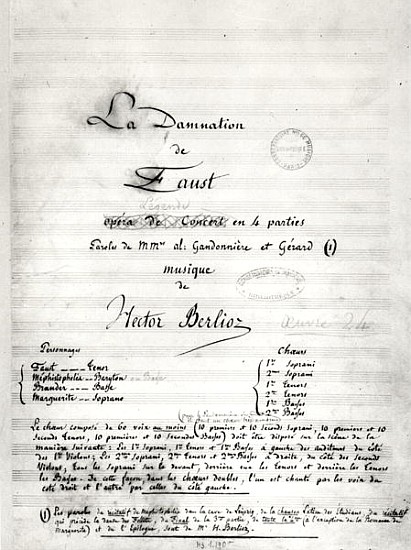 La Damnation
de
Faust
Légende
opéra de Concert en 4 parties
Paroles de MMrs al: Gandonnière et Gérard (1)
musique
de
Hector Berlioz
Œuvre 24
Personnages
Faust ---- Ténor
Méphistophélès -- Baryton ou Basse
Brander ---- Basse
Marguerite --- Soprano
Chœurs
1rs Soprani
2mes Soprani
1rs Tenors
2mes Tenors
1res Basses
2mes Basses
Le chœur composé de 60 voix au moins (10 premiers et 10 seconds Soprani, 10 premiers et 10
seconds Tenors, 10 premières et 10 secondes Basses) doit être disposé sur la scène de la
manière suivante: Les 1rs Soprani, 1rs Tenors et 1res Basses à gauche des auditeurs du côté
des 1rs Violons; Les 2mes Soprani, 2mes Tenors et 2mes Basses à droite, du côté des seconds
Violons, tous les Soprani sur le devant, derrière eux les Tenors et derrière les Tenors
les Basses. De cette façon dans les chœurs doubles, l'un est chanté par les voix du
côté droit et l'autre par celles du côté gauche.
(1) Les paroles du récitatif de Méphistophélès dans la cave de Leipzig, de la chanson Latine des Etudiants, du récitatif
qui précède la danse des Follets, du Final de la 3me partie, de toute la 4me (à l'exception de la Romance de
Marguerite) et de l'Epilogue, sont de Mr H. Berlioz